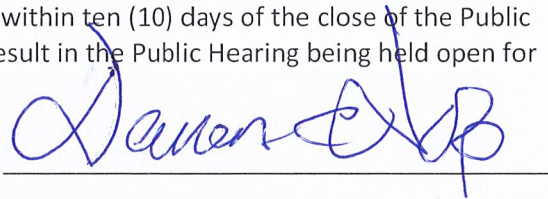 within ten (10) days of the close of the Public
esult in the Public Hearing being held open for